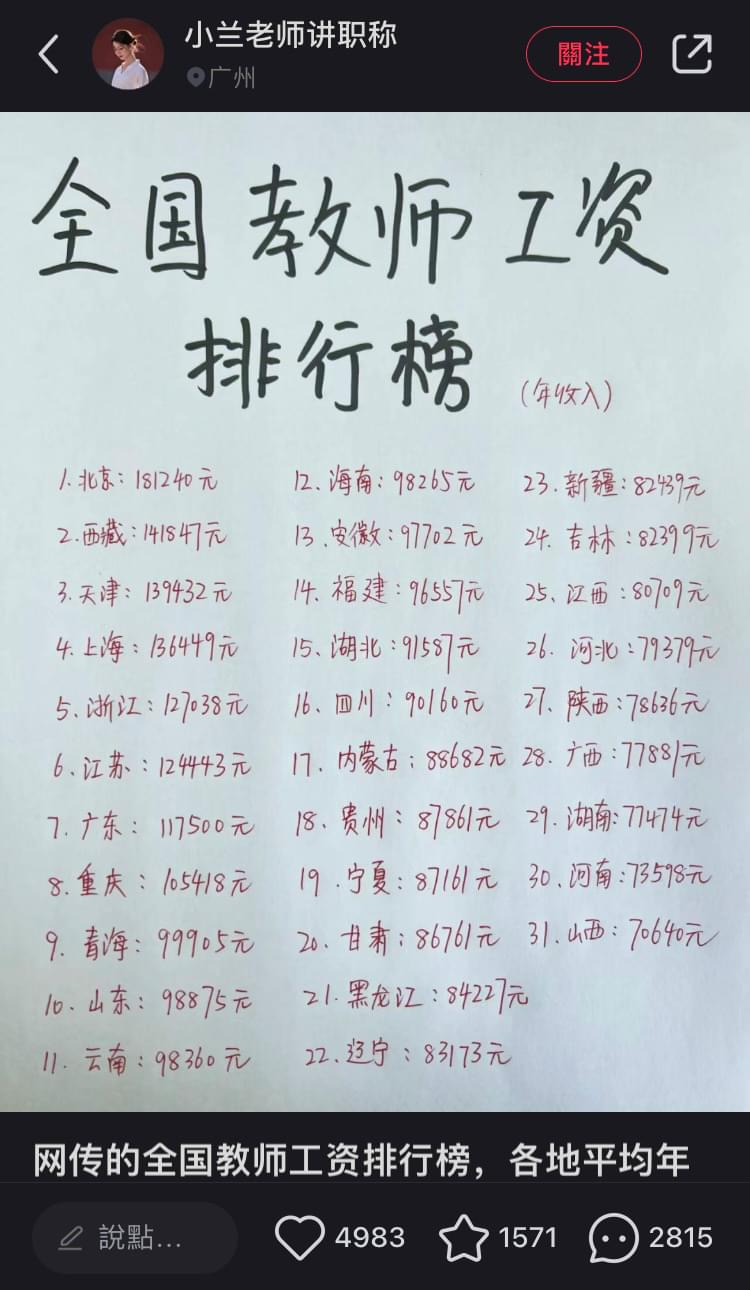 小兰老师讲职称
广州
關注
全国教师工资
排行榜 (年收入)
1.北京:181240元
2.西藏:141847元
3.天津:139432元
4.上海:136449元
5.浙江:127038元
6.江苏:124443元
7.广东:117500元
8.重庆:105418元
9.青海:99905元
10.山东:98875元
11.云南:98360元
12、海南:98265元
13.安徽:97702元
14、福建:96557元
15、湖北:91587元
16、四川:90160元
17.内蒙古:88682元
18、贵州:87861元
19.宁夏:87161元
20.甘肃:86761元
21.黑龙江:84227元
22.辽宁:83173元
23.新疆:82439元
24.吉林:82399元
25、江西:80709元
26.河北:79379元
27、陕西:78636元
28.广西:77881元
29.湖南:77474元
30.河南:73598元
31.山西:70640元
网传的全国教师工资排行榜，各地平均年
說點...
4983
1571
2815